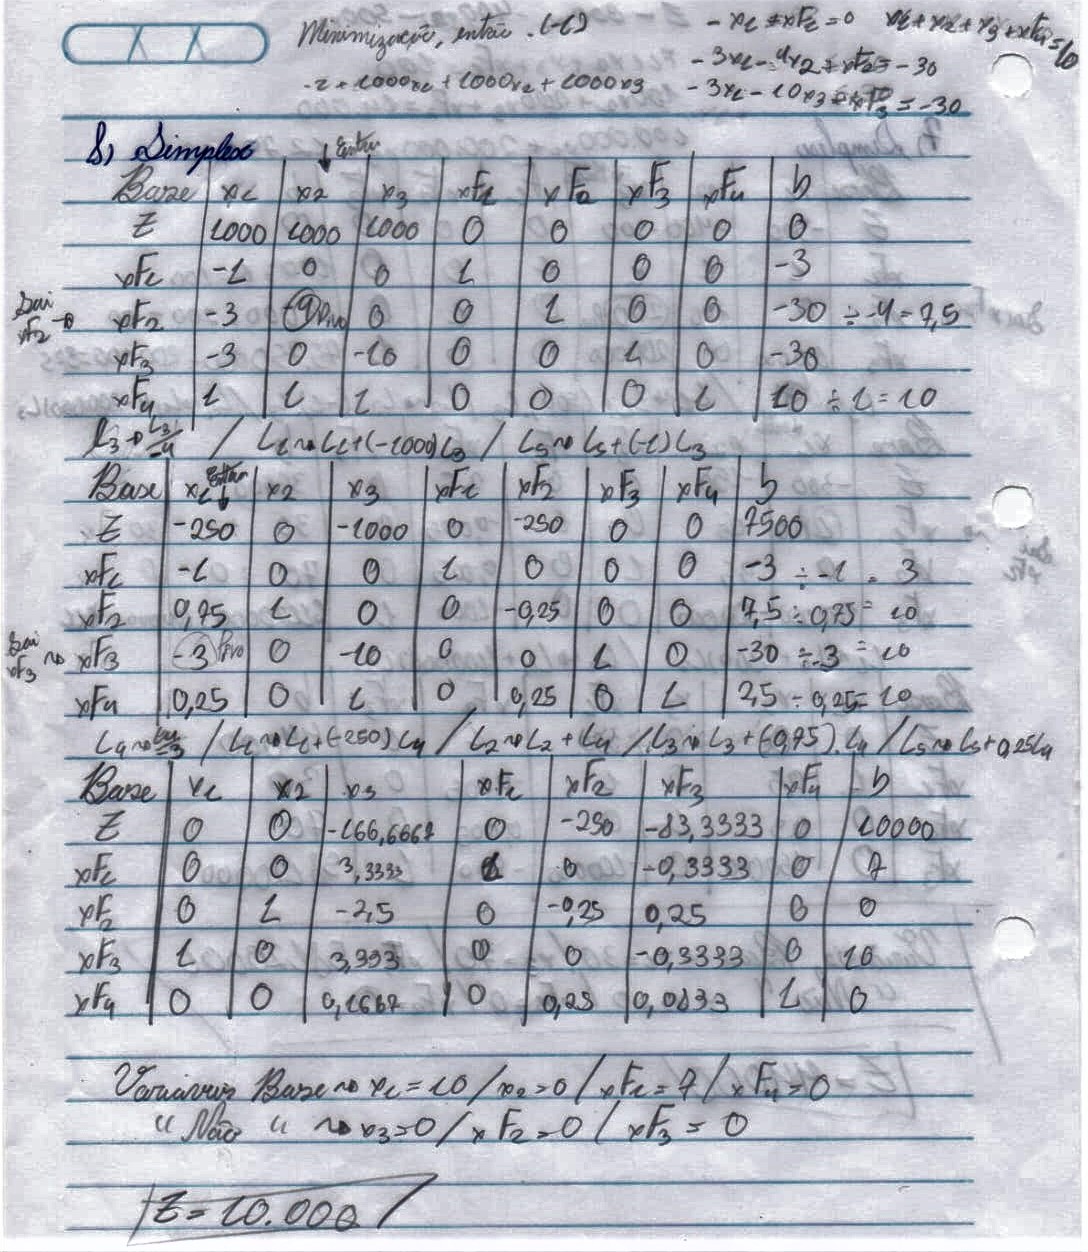 Minimização, então .(-1)
- x1 + xF1 = 0 x1 + x2 + x3 + xF4 = 10
- 3x1 - 4x2 + xF2 = -30
-z + 1000x1 + 1000x2 + 1000x3 - 3x1 - 10x3 + xF3 = -30
8) Simplex ↓ Entra
Base x1 x2 x3 xF1 xF2 xF3 xF4 b
Z 1000 1000 1000 0 0 0 0 0
xF1 -1 0 0 1 0 0 0 -3
Sai xF2 → xF2 -3 -4 Pivo 0 0 1 0 0 -30 ÷ -4 = 7,5
xF3 -3 0 -10 0 0 1 0 -30
xF4 1 1 1 0 0 0 1 10 ÷ 1 = 10
L3 → L3/-4 / L1 → L1 + (-1000)L3 / L5 → L5 + (-1)L3
Base x1 Entra ↓ x2 x3 xF1 xF2 xF3 xF4 b
Z -250 0 -1000 0 -250 0 0 7500
xF1 -1 0 0 1 0 0 0 -3 ÷ -1 = 3
xF2 0,75 1 0 0 -0,25 0 0 7,5 ÷ 0,75 = 10
Sai xF3 → xF3 -3 Pivo 0 -10 0 0 1 0 -30 ÷ -3 = 10
xF4 0,25 0 1 0 0,25 0 1 2,5 ÷ 0,25 = 10
L4 → L4/-3 / L1 → L1 + (-250) L4 / L2 → L2 + L4 / L3 → L3 + (-0,75).L4 / L5 → L5 + 0,25L4
Base x1 x2 x3 xF1 xF2 xF3 xF4 b
Z 0 0 -166,6667 0 -250 -83,3333 0 10000
xF1 0 0 3,3333 1 0 -0,3333 0 7
xF2 0 1 -2,5 0 -0,25 0,25 0 0
xF3 1 0 3,333 0 0 -0,3333 0 10
xF4 0 0 0,1667 0 0,25 0,0833 1 0
Variáveis Base → x1 = 10 / x2 = 0 / xF1 = 7 / xF4 = 0
" Não " → x3 = 0 / xF2 = 0 / xF3 = 0
Z = 10.000